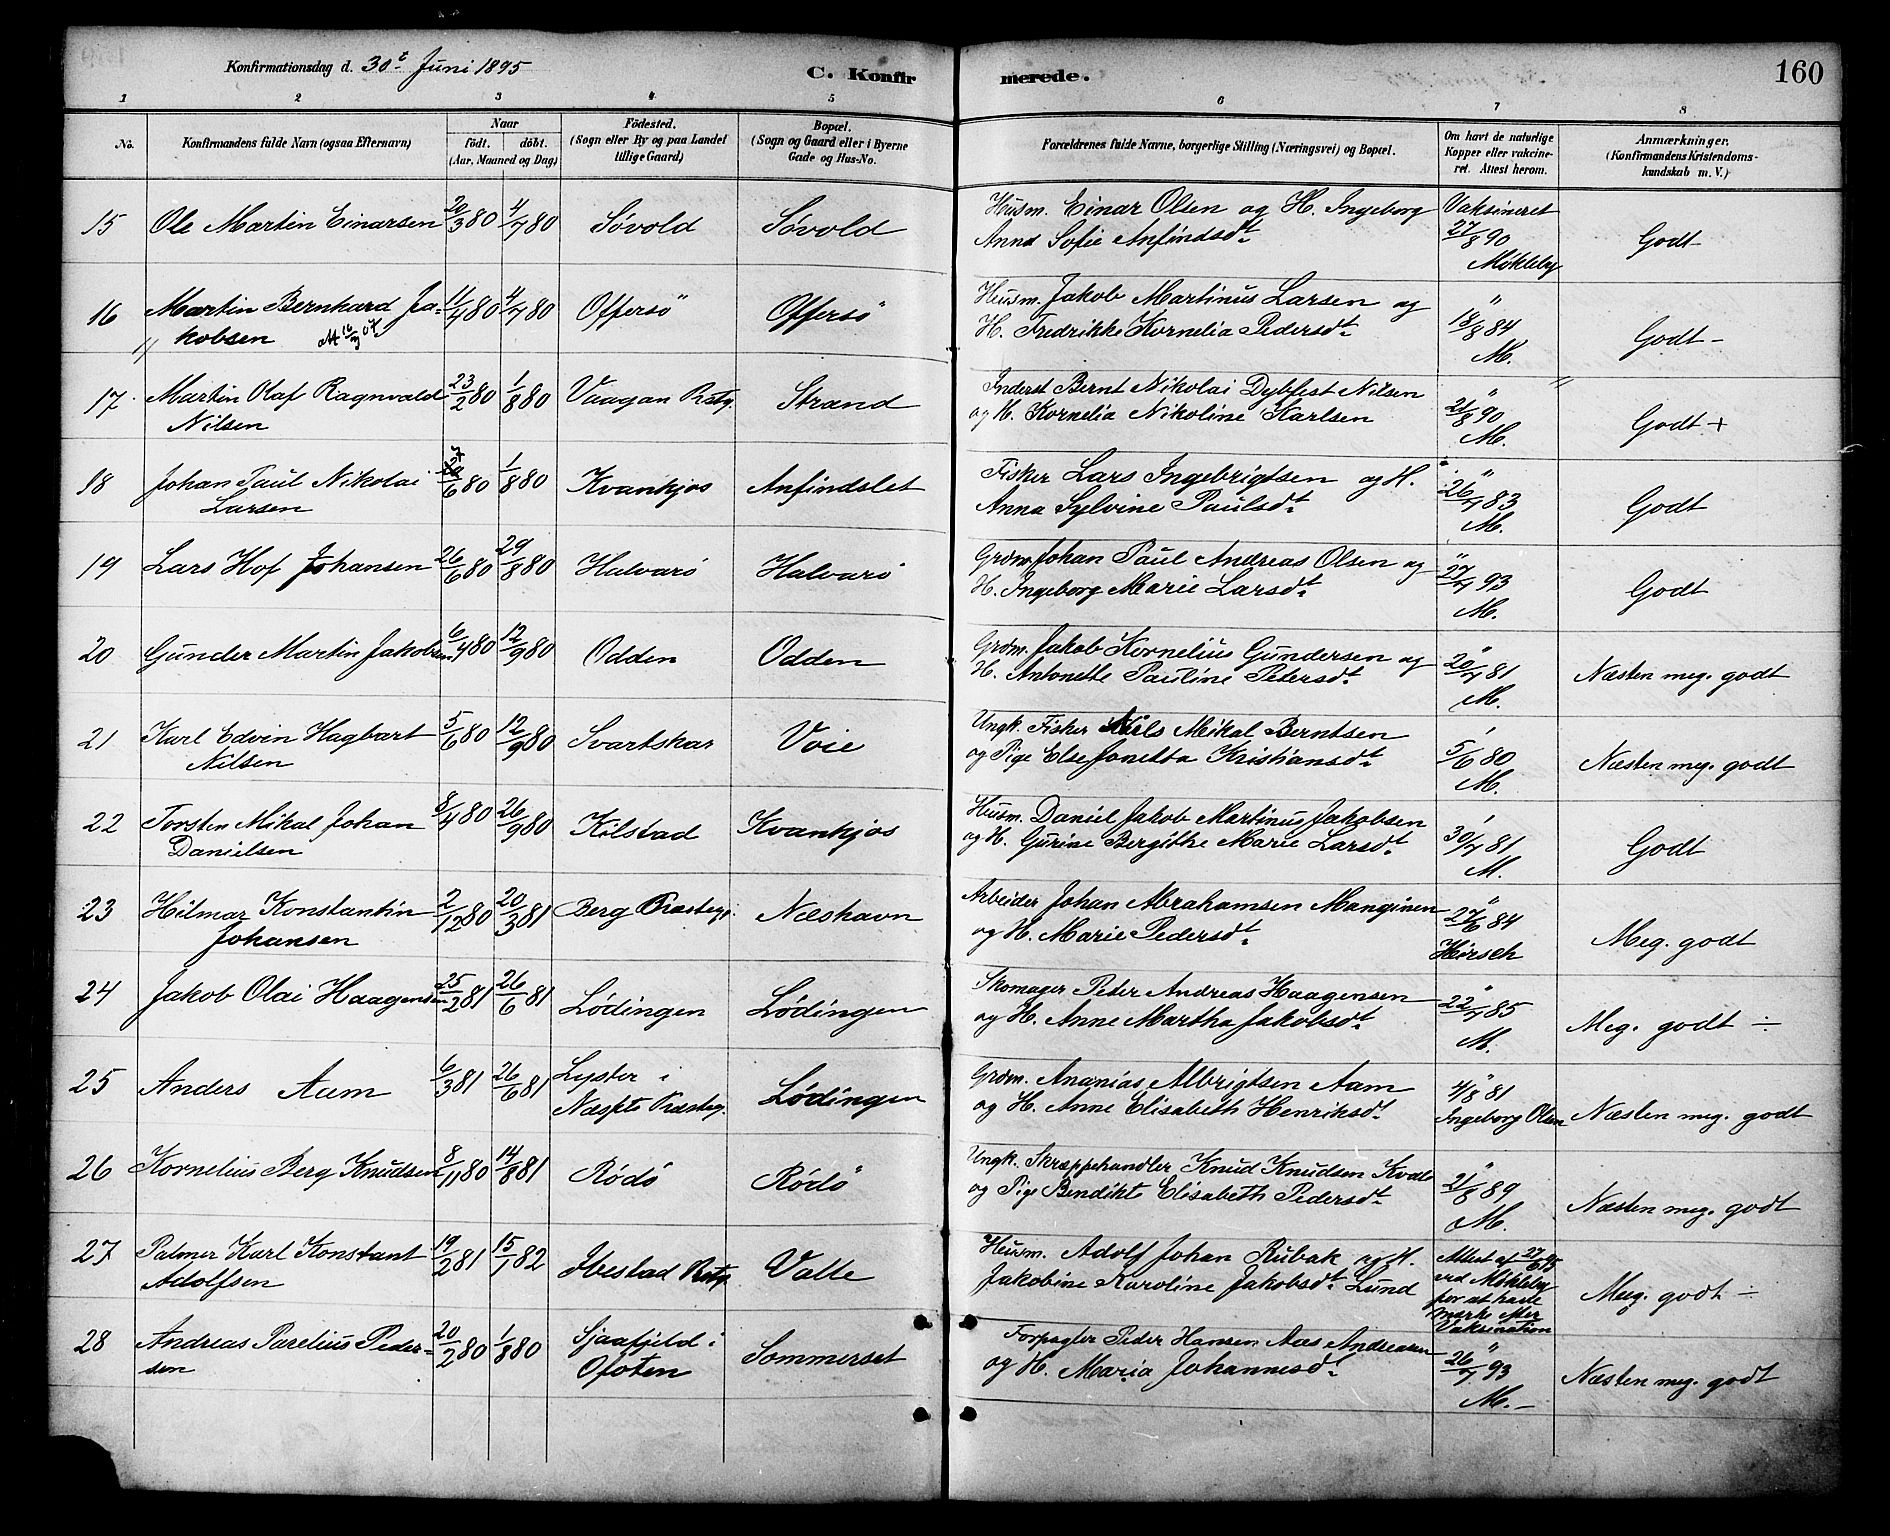 Konfirmationsdag d. 30t Juni 1895
C. Konfirmerede.
160
1 2 3 4 5 6 7 8
No.
Konfirmandens fulde Navn (ogsaa Efternavn)
Naar
født. døbt.
(Aar, Maaned og Dag)
Födested.
(Sogn eller By og paa Landet
tillige Gaard)
Bopæl.
(Sogn og Gaard eller i Byerne
Gade og Hus-No.
Forældrenes fulde Navne, borgerlige Stilling (Næringsvei) og Bopæl.
Om havt de naturlige
Kopper eller vakcine-
ret. Attest herom.
Anmærkninger.
(Konfirmandens Kristendoms-
kundskab m. V.)
15 Ole Martin Einarsen 20/3 80 4/7 80 Søvold Søvold Husm. Einar Olsen og H. Ingeborg Vaksineret
Anna Sofie Anfindsdt. 27/8 90 Godt
Mökleby
16 Martin Bernhard Ja- 11/4 80 4/7 80 Offersö Offersö Husm. Jakob Martinus Larsen og "
kobsen H. Fredrikke Kornelia Pedersdt. 18/8 84 Godt -
M.
17 Martin Olaf Ragnvald 23/2 80 1/8 80 Vaagan Prstg. Strand Inderst Bernt Nikolai Dybfest Nilsen "
Nilsen og H. Kornelia Nikoline Karlsen 21/8 90 Godt +
M.
18 Johan Paul Nikolai /6 80 1/8 80 Kvankjos Anfindslet Fisker Lars Ingebrigtsen og H. "
Larsen Anna Sylvine Paulsdt. 26/7 83 Godt
M.
19 Lars Hof Johansen 26/6 80 29/8 80 Halvarö Halvarö Grdm. Johan Paul Andreas Olsen og "
H. Ingeborg Marie Larsdt. 27/7 93 Godt
M.
20 Gunder Martin Jakobsen 6/4 80 12/9 80 Odden Odden Grdm. Jakob Kornelius Gundersen og "
H. Antonette Pauline Pedersdt. 20/7 81 Næsten meg. godt
M.
21 Karl Edvin Hagbart 5/6 80 12/9 80 Svartskar Voie Ungk. Fisker Nils Mikal Berntsen
Nilsen og Pige Else Jonetta Kristiansdt. 5/6 80 Næsten meg. godt
M.
22 Torsten Mikal Johan 8/4 80 26/9 80 Kilstad Kvankjos Husm. Daniel Jakob Martinus Jakobsen
Danielsen og H. Gurine Bergithe Marie Larsdt. 30/7 81 Godt
M.
23 Hilmar Konstantin 2/12 80 20/3 81 Berg Præsteg. Næshavn Arbeider Johan Abrahamsen Manginen "
Johansen og H. Marie Pedersdt. 27/6 84 Meg. godt
Hirsch
24 Jakob Olai Haagensen 25/2 81 26/6 81 Lödingen Lödingen Skomager Peder Andreas Haagensen "
og H. Anne Martha Jakobsdt. 22/7 85 Meg. godt ÷
M.
25 Anders Aam 6/3 81 26/6 81 Lyster i Lödingen Grdm. Ananias Albrigtsen Aam 4/8 81
Præsteg. og H. Anne Elisabeth Henriksdt. Ingeborg Olsen Næsten meg. godt
26 Kornelius Berg Knudsen 8/11 80 14/8 81 Rödö Rödö Ungk. Skræppehandler Knud Knudsen Kvale "
og Pige Bendikte Elisabeth Pedersdt. 21/8 89 Næsten meg. godt
M.
27 Palmer Karl Konstant 19/2 81 15/1 82 Ibestad Prstg. Valle Husm. Adolf Johan Rubak og H. Attest af 27/6 95
Adolfsen Jakobine Karoline Jakobsdt. Lund ved Mökleby Meg. godt ÷
for at have
mærke efter
Vaksination
28 Andreas Parelius Peder- 20/2 80 1/8 80 Sjaafjeld i Sommerset Forpagter Peder Hansen Aas Andreasen "
sen Ofoten og H. Maria Johannesdt. 26/7 93 Næsten meg. godt
M. -